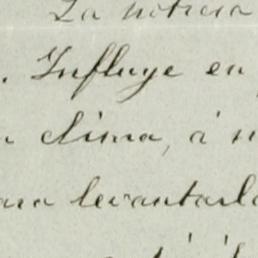 La noticia
. Influye en
clima, á
levantarlo